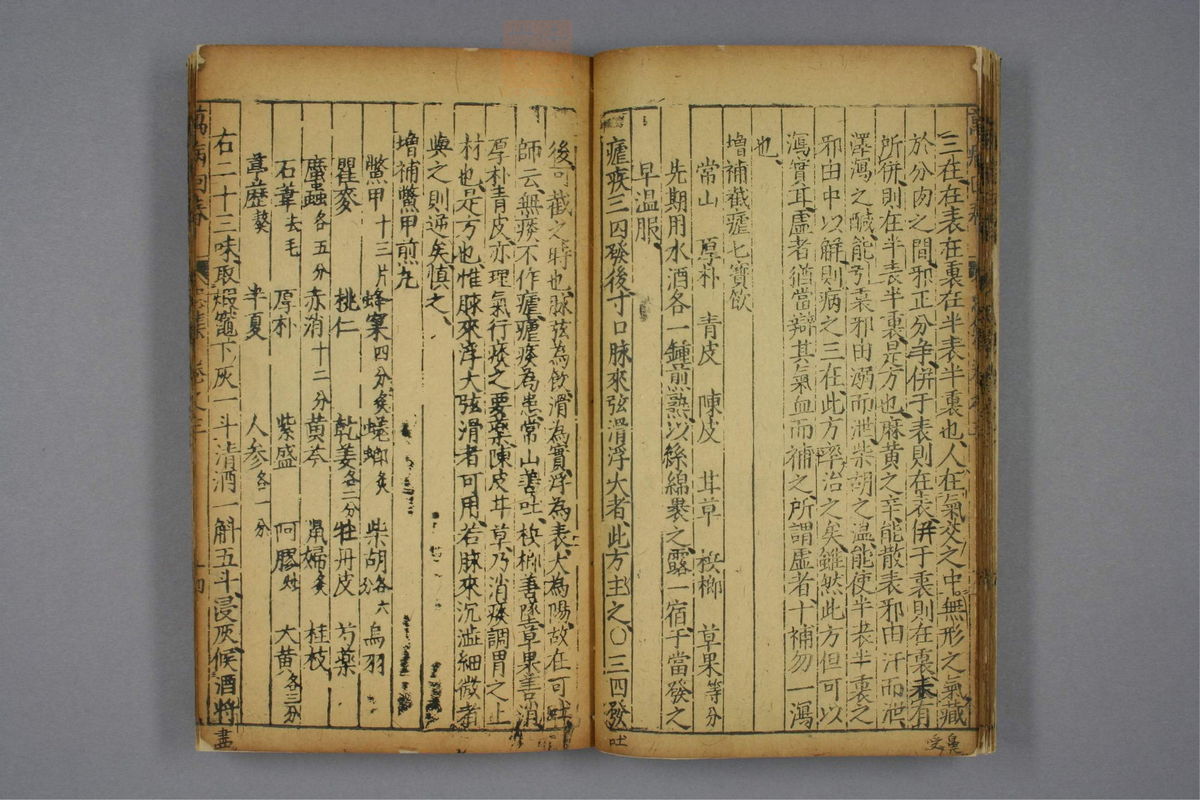 三在在表在裏在半表半裏也人在氣交之中無形之氣藏
於分肉之間邪正分爭併于表則在表併于裏則在裏未有
所併則在半表半裏是方也麻黃之辛能散表邪由汗而泄
澤瀉之鹹能引裏邪由溺而泄柴胡之溫能使半表半裏之
邪由中以解則病之三在此方率治之矣雖然此方但可以
瀉實耳虛者猶當辯其氣血而補之所謂虛者十補勿一瀉
也
增補截瘧七寶飲
常山 厚朴 青皮 陳皮 甘草 梹榔 草果等分
先期用水酒各一鍾煎熟以絲綿裹之露一宿于當發之
早溫服
瘧疾三四發後寸口脉來弦滑浮大者此方主之○三四發
吐
後可截之時也脉弦為飲滑為實浮為表大為陽故在可吐
師云無痰不作瘧瘧痰為患常山善吐梹榔善墜草果善消
厚朴青皮亦理氣行痰之要藥陳皮甘草乃消痰調胃之上
材也是方也惟脉來浮大弦滑者可用若脉來沉澁細微者
與之則逆矣慎之
增補鱉甲煎丸
鱉甲十三片 蜂窠四分炙 蜣螂炙 柴胡各六分 烏羽
瞿麥 桃仁 乾姜各二分 牡丹皮 芍藥
䗪蟲各五分 赤消十二分 黃芩 鼠婦炙 桂枝
石葦去毛 厚朴 紫盛 阿膠 大黃各三分
葶藶熬 半夏 人參各一分
右二十三味取煆竈下灰一斗清酒一斛五斗浸灰候酒將
盡
萬病回春